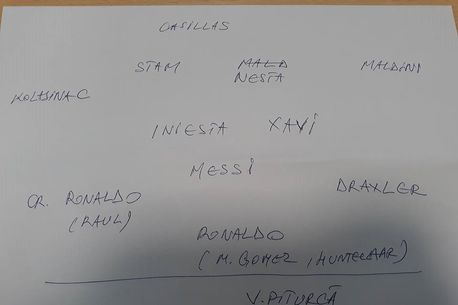 CASILLAS
STAM MALD MALDINI
NESTA
KOLASINAC
INIESTA XAVI
MESSI
DRAXLER
CR. RONALDO
(RAUL)
RONALDO
(M. GOMEZ, HUNTELAAR)
V. PITURCĂ